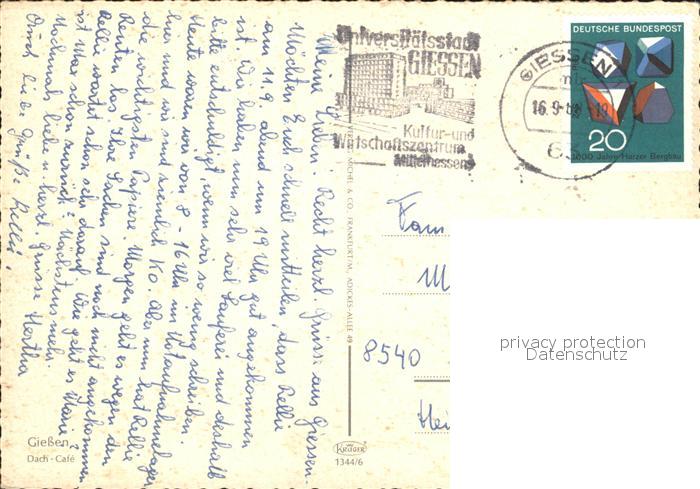 Meine Lieben! Recht herzl. Grüsse aus Giessen.
Möchten Euch schnell mitteilen, dass Relli
am 11.9. abend um 19 Uhr gut angekommen
ist. Wir haben nun sehr viel Lauferei und deshalb
bitte entschuldigt wenn wir so wenig schreiben.
Heute waren wir von 8 - 16 Uhr im Notaufnahmelager
hier und wir sind ziemlich KO. Aber nun hat Relli
die wichtigsten Papiere. Morgen geht es wegen den
Renten los. Ihre Sachen sind noch nicht angekommen
Relli wartet schon sehr darauf. Wie geht es Marie?
ist Max schon zurück? Nächstens mehr.
Nochmals liebe u. herzl. Grüsse Hertha
Euch liebe Grüße Relli!
Gießen
Dach - Café
KRÜGER
1344/6
SCHEL & CO. FRANKFURT/M., ADICKES-ALLEE 49
Universitätsstadt
GIESSEN
Kultur- und
Wirtschaftszentrum
Mittelhessens
GIESSEN
16.9.
63
DEUTSCHE BUNDESPOST
20
1000 Jahre Harzer Bergbau
Fam
M
8540
Hei
privacy protection
Datenschutz